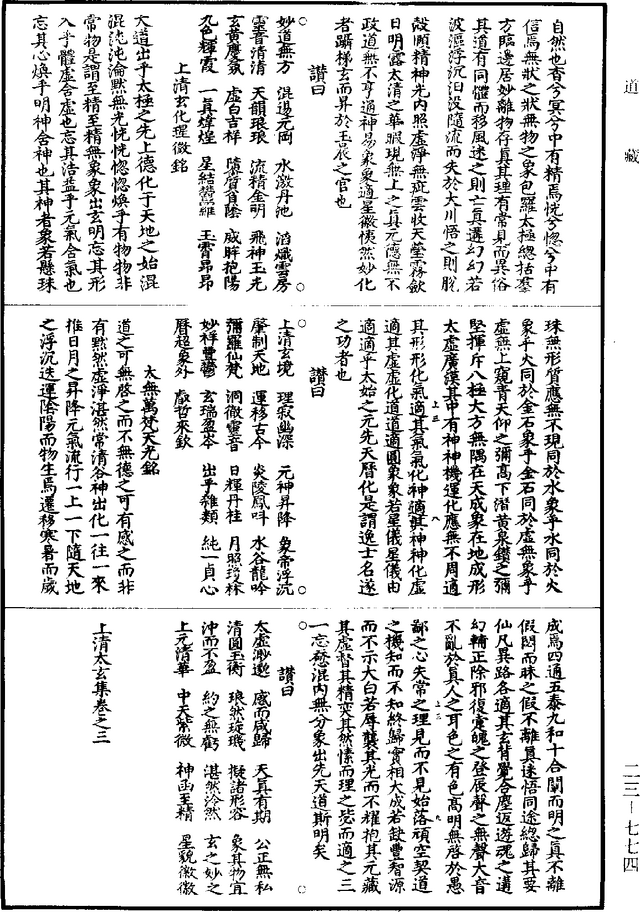 道藏
自然也杳兮冥兮中有精焉恍兮惚兮中有
信焉無狀之狀無物之象包羅太極總括羣
方臨邊居妙離物存真其理有常見而異俗
其道有同儺而移風迷之則亡真遘幻幻若
波漚浮沉汨没隨流而失於大川悟之則脫
殼頤精神光内照虛淨無疵雲收天瑩霧歛
日明露太清之華暇現無上之真元德無不
政道無不亨適神易象象適星徽恢然妙化
者躡梯玄而昇於玉宸之官也
讚曰
妙道無方 混邈元岡 水激丹池 滔熾雲房
靈音清清 天韻琅琅 流精金明 飛神玉光
玄黄慶氣 虛白吉祥 隨質負陰 成胖抱陽
九色輝霞 一真煒煌 星結鬱羅 玉霄昂昂
上清玄化理微銘
大道出乎太極之先上德化于天地之始混
混沌沌淪淪默無光恍恍惚惚煥乎有物物非
常物是謂至精至精無象象出玄明忘其形
入乎體虛合虛也忘其活益乎元氣合氣也
忘其心煥乎明神舍神也其神者象若懸珠
珠無形質應無不現同於水象乎水同於火
象乎火同於金石象乎金石同於虛無象乎
虛無上窺青天仰之彌高下潛黄泉鑽之彌
堅揮斥八極大方無隅在天成象在地成形
太虛廣漠其中有神神機運化應無不周適
其形形化氣適其氣氣化神適其神神化虛
適其虛虛化道道適圓象象若星儀星儀由
適適乎太始之元先天曆化是謂逸士名遂
之功者也
讚曰
上清玄境 理寂幽深 元神昇降 象帝浮沉
肇制天地 運移古今 炎陵鳳呌 水谷龍吟
彌羅仙梵 洞徹靈音 日輝丹柱 月照瓊林
妙祥豐鬱 玄瑞盈岑 出乎雜類 純一貞心
曆超象外 彥哲來欽
太無萬梵天光銘
道之可無啓之而不無德之可有感之而非
有默然虛淨湛然常清谷神出化一往一來
惟日月之昇降元氣流行一上一下隨天地
之浮沉迭運陰陽而物生焉遷移寒暑而歲
成焉四適五泰九和十合闡而明之真不離
假悶而昧之假不離真迷悟同途總歸其要
仙凡異路各適其玄背覺合塵返遊魂之遘
幻輔正除邪復靈魄之登辰聲之無聲大音
不亂於真人之耳色之有色高明無啓於愚
鄙之心失常之理見而不見始落頑空契道
之機知而不知終歸實相大成若缺豐智源
而不示大白若辱襲其光而不耀抱其元藏
其虛督其精蛮其然愫而理之毖而適之三
一忘礙混内無分象出先天道斯明矣
讚曰
太虛渺邈 感而咸歸 天真有期 公正無私
清圓玉衡 琅然琁璣 擬諸形容 象其物宜
沖而不盈 約之無虧 湛然泠然 玄之妙之
上元清華 中天紫微 神函至精 星貌徽徽
上清太玄集卷之三
二三—七七四